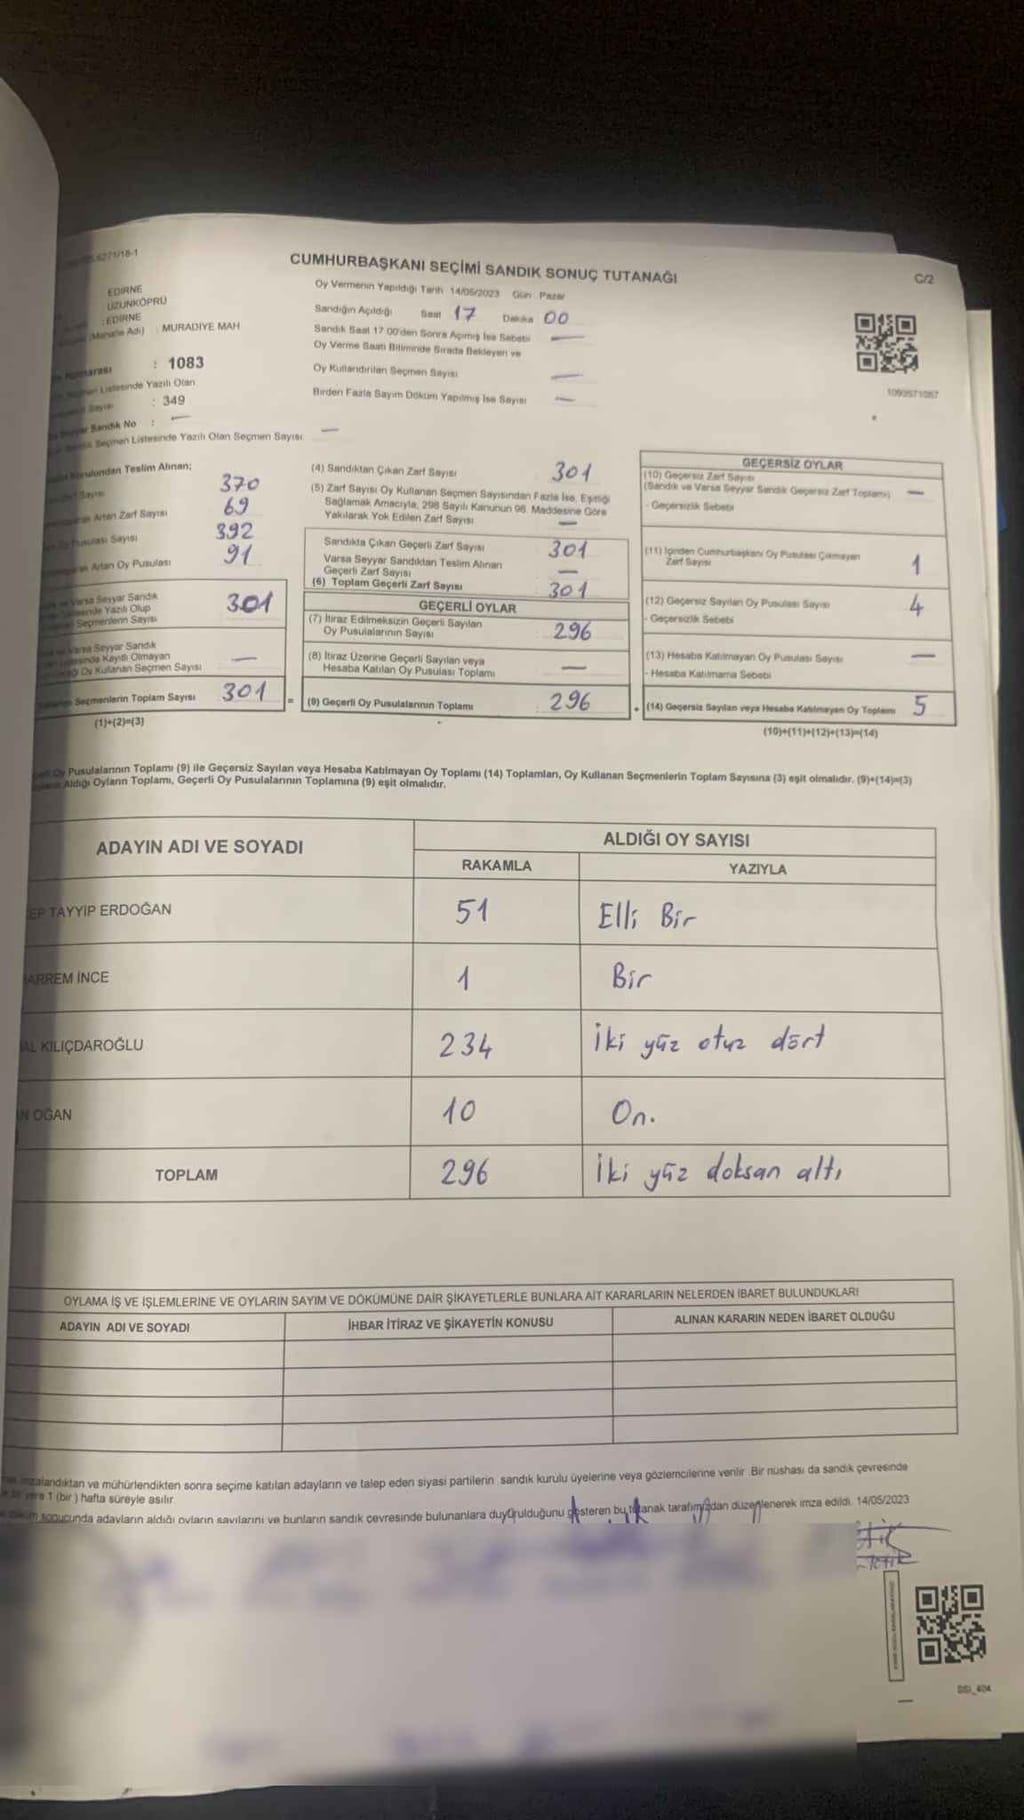 6271/18-1
CUMHURBAŞKANI SEÇİMİ SANDIK SONUÇ TUTANAĞI
C/2
EDİRNE
UZUNKÖPRÜ
: EDİRNE
(Mahalle Adı) : MURADİYE MAH
: 1083
Listesinde Yazılı Olan
: 349
Seyyar Sandık No : —
Seçmen Listesinde Yazılı Olan Seçmen Sayısı —
Oy Vermenin Yapıldığı Tarih 14/05/2023 Gün Pazar
Sandığın Açıldığı Saat 17 Dakika 00
Sandık Saat 17:00'den Sonra Açılmış İse Sebebi —
Oy Verme Saati Bitiminde Sırada Bekleyen ve
Oy Kullandırılan Seçmen Sayısı —
Birden Fazla Sayım Döküm Yapılmış İse Sayısı —
1090571087
Kurulundan Teslim Alınan;
Sayısı 370
Artan Zarf Sayısı 69
Oy Pusulası Sayısı 392
Artan Oy Pusulası 91
ve Varsa Seyyar Sandık
Listesinde Yazılı Olup
Seçmenlerin Sayısı 301
ve Varsa Seyyar Sandık
Listesinde Kayıtlı Olmayan
Oy Kullanan Seçmen Sayısı —
Seçmenlerin Toplam Sayısı 301 =
(1)+(2)=(3)
(4) Sandıktan Çıkan Zarf Sayısı 301
(5) Zarf Sayısı Oy Kullanan Seçmen Sayısından Fazla İse, Eşitliği
Sağlamak Amacıyla, 298 Sayılı Kanunun 98. Maddesine Göre
Yakılarak Yok Edilen Zarf Sayısı —
Sandıkta Çıkan Geçerli Zarf Sayısı 301
Varsa Seyyar Sandıktan Teslim Alınan
Geçerli Zarf Sayısı —
(6) Toplam Geçerli Zarf Sayısı 301
GEÇERLİ OYLAR
(7) İtiraz Edilmeksizin Geçerli Sayılan
Oy Pusulalarının Sayısı 296
(8) İtiraz Üzerine Geçerli Sayılan veya
Hesaba Katılan Oy Pusulası Toplamı —
(9) Geçerli Oy Pusulalarının Toplamı 296 +
GEÇERSİZ OYLAR
(10) Geçersiz Zarf Sayısı
(Sandık ve Varsa Seyyar Sandık Geçersiz Zarf Toplamı) —
- Geçersizlik Sebebi
(11) İçinden Cumhurbaşkanı Oy Pusulası Çıkmayan
Zarf Sayısı 1
(12) Geçersiz Sayılan Oy Pusulası Sayısı 4
- Geçersizlik Sebebi
(13) Hesaba Katılmayan Oy Pusulası Sayısı —
- Hesaba Katılmama Sebebi
(14) Geçersiz Sayılan veya Hesaba Katılmayan Oy Toplamı 5
(10)+(11)+(12)+(13)=(14)
Oy Pusulalarının Toplamı (9) ile Geçersiz Sayılan veya Hesaba Katılmayan Oy Toplamı (14) Toplamları, Oy Kullanan Seçmenlerin Toplam Sayısına (3) eşit olmalıdır. (9)+(14)=(3)
Aldığı Oyların Toplamı, Geçerli Oy Pusulalarının Toplamına (9) eşit olmalıdır.
ADAYIN ADI VE SOYADI
ALDIĞI OY SAYISI
RAKAMLA YAZIYLA
EP TAYYİP ERDOĞAN 51 Elli Bir
ARREM İNCE 1 Bir
AL KILIÇDAROĞLU 234 İki yüz otuz dört
N OĞAN 10 On.
TOPLAM 296 İki yüz doksan altı
OYLAMA İŞ VE İŞLEMLERİNE VE OYLARIN SAYIM VE DÖKÜMÜNE DAİR ŞİKAYETLERLE BUNLARA AİT KARARLARIN NELERDEN İBARET BULUNDUKLARI
ADAYIN ADI VE SOYADI İHBAR İTİRAZ VE ŞİKAYETİN KONUSU ALINAN KARARIN NEDEN İBARET OLDUĞU
imzalandıktan ve mühürlendikten sonra seçime katılan adayların ve talep eden siyasi partilerin sandık kurulu üyelerine veya gözlemcilerine verilir. Bir nüshası da sandık çevresinde
bir yere 1 (bir) hafta süreyle asılır.
sonucunda adayların aldığı oyların sayılarını ve bunların sandık çevresinde bulunanlara duyurulduğunu gösteren bu tutanak tarafımızdan düzenlenerek imza edildi. 14/05/2023
SSI_404